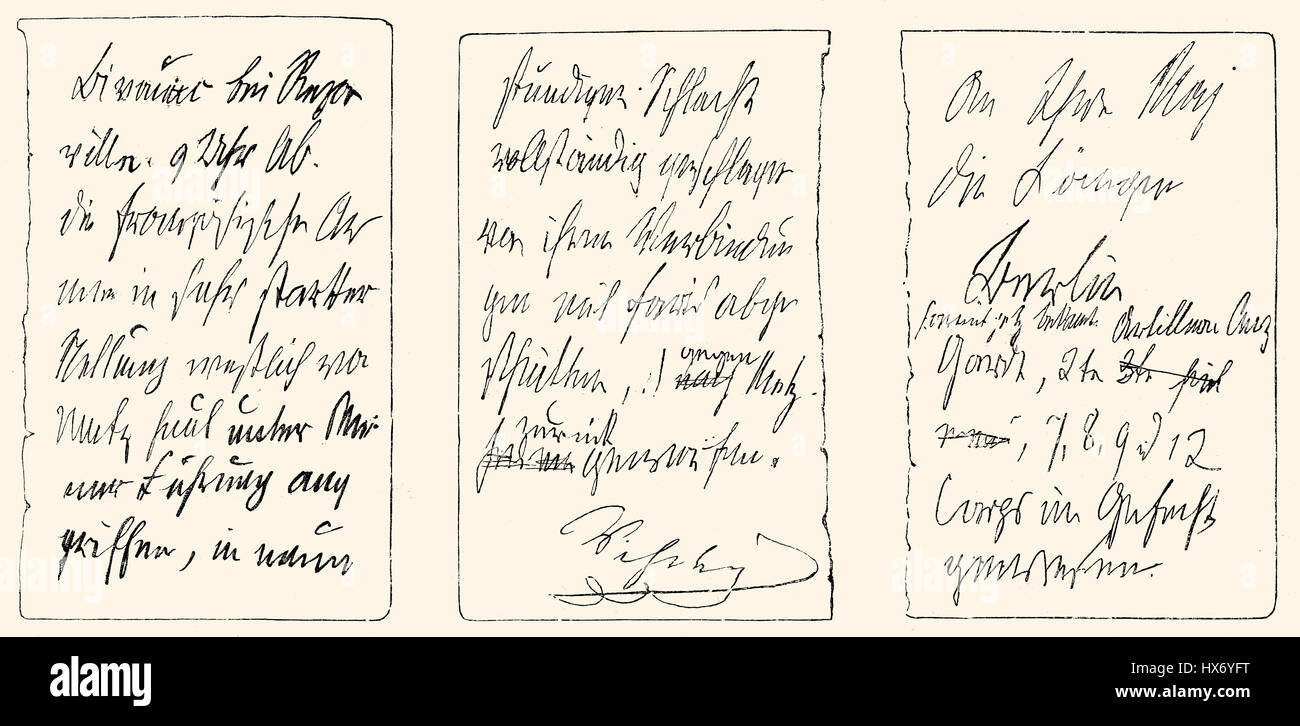 Bivouac bei Rezon
ville. 9 Uhr Ab.
die französische Ar
mee in sehr starker
Stellung westlich von
Metz heut unter Mei
ner Führung ange
griffen, in neun
stündiger Schlacht
vollständig geschlagen
von ihren Verbindun
gen mit Paris abge
schnitten, gegen
nach Metz.
zurück
geworfen.
Wilhelm
An Ihre Maj
die Königin
Berlin
Garde, 2te 3te
7, 8, 9 u 12
Corps im Gefecht
gewesen.
alamy
Image ID: HX6YFT
www.alamy.com